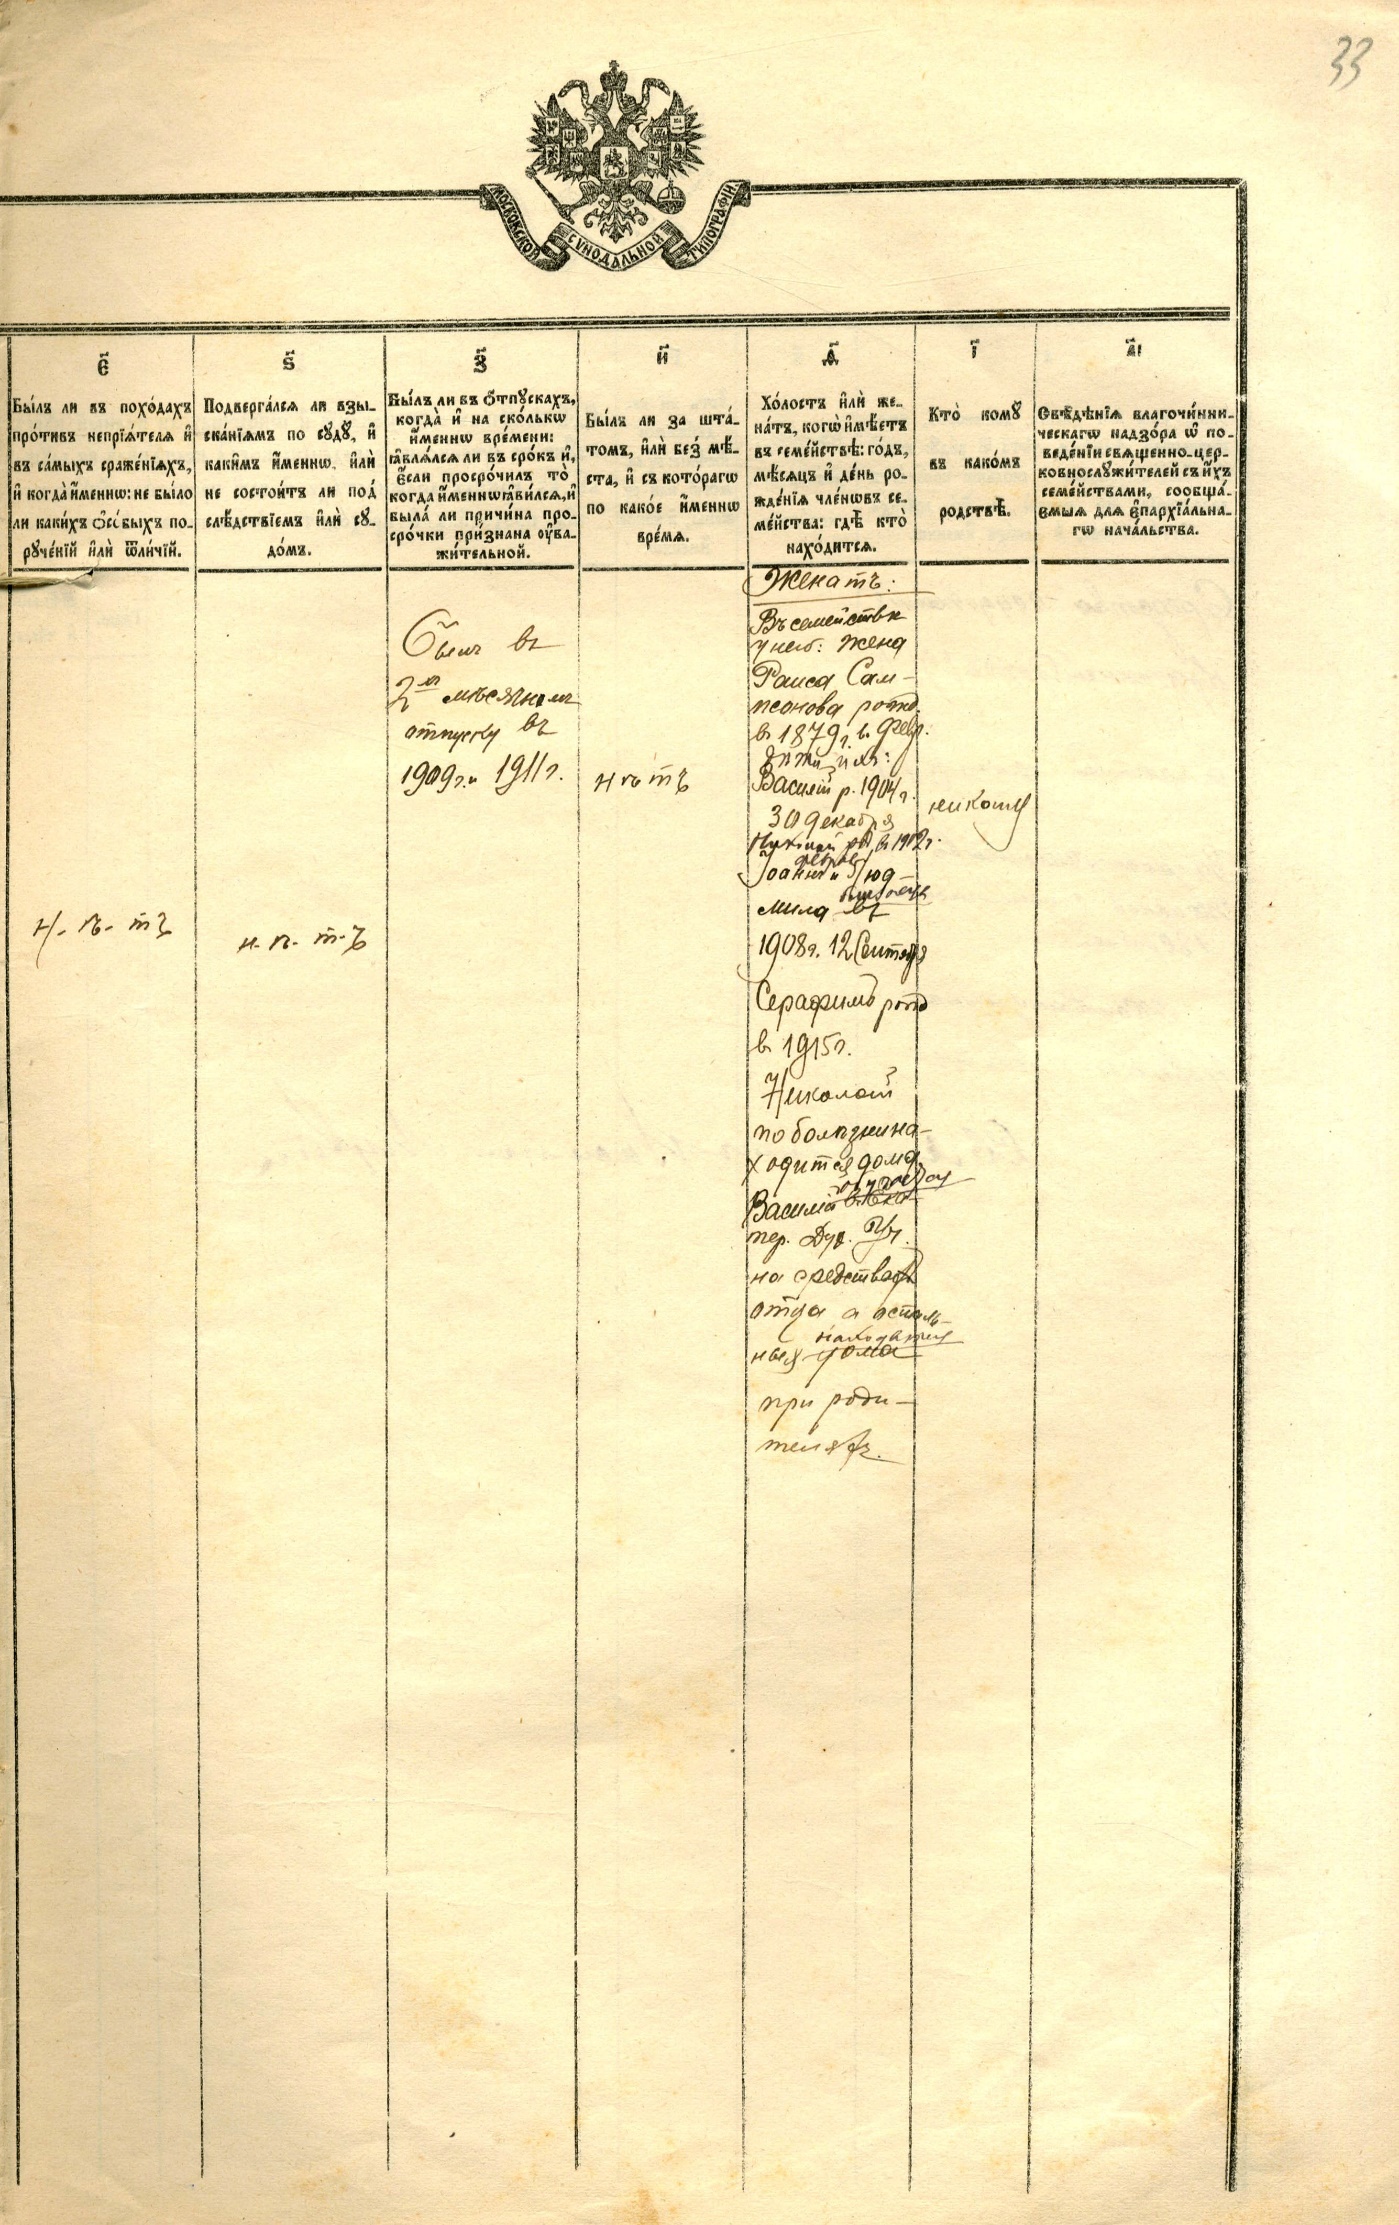 33
МОСКОВСКОЙ СѴНОДАЛЬНОЙ ТИПОГРАФІИ.
є҃
Бы́лъ ли въ похо́дахъ
про́тивъ непрїѧ́телѧ и҆
въ са́мыхъ сраже́нїѧхъ,
и҆ когда̀ и҆́меннѡ: не бы́ло
ли каки́хъ ѻ҆со́быхъ по-
рꙋче́нїй и҆лѝ ѿли́чїй.
ѕ҃
Подверга́лсѧ ли взы-
ска́нїѧмъ по сꙋдꙋ̀, и҆
каки̑мъ и҆́меннѡ, и҆лѝ
не состои́тъ ли под̾
слѣ́дствїемъ и҆лѝ сꙋ-
до́мъ.
з҃
Бы́лъ ли въ ѻ҆́тпꙋскахъ,
когда̀ и҆ на ско́лькѡ
и҆́меннѡ вре́мени:
ꙗ҆влѧ́лсѧ ли въ сро́къ и҆,
є҆́сли просро́чилъ то̀
когда̀ и҆́меннѡ ꙗ҆ви́лсѧ, и҆
была́ ли причи́на про-
сро́чки при́знана ᲂу҆ва-
жи́тельной.
и҃
Бы́лъ ли за шта́-
томъ, и҆лѝ без̾ мѣ́-
ста, и҆ съ кото́рагѡ
по како́е и҆́меннѡ
вре́мѧ.
ѳ҃
Хо́лостъ и҆лѝ же-
на́тъ, когѡ̀ и҆мѣ́етъ
въ семе́йствѣ: го́дъ,
мѣ́сѧцъ и҆ де́нь ро-
жде́нїѧ чле́нѡвъ се-
ме́йства: гдѣ̀ кто̀
нахо́дитсѧ.
і҃
Кто̀ комꙋ̀
въ како́мъ
родствѣ̀.
а҃і
Свѣ́дѣнїѧ благочи́нни-
ческагѡ надзо́ра ѡ҆ по-
веде́нїи свѧще́нно-цер-
ковнослꙋжи́телей съ и҆́хъ
семе́йствами, сообща́-
ємыѧ для є҆парха́льна-
гѡ нача́льства.
н-ѣ-тъ
н-ѣ-т-ъ
Былъ въ
2хъ мѣсячномъ
отпуску въ
1909 г. и 1911 г.
нѣтъ
Женатъ:
Въ семействѣ
у него: жена
Раиса Сам-
псонова рожд.
въ 1879 г. въ Февр.
Дѣти ихъ:
Василій р. 1904 г.
30 декабря
Николай род. въ 1902 г.
Іоаннъ и Люд-
мила въ
1908 г. 12 Сентября
Серафимъ рожд
въ 1915 г.
Николай
по болѣзни на-
ходится дома,
Василій въ Ека-
тер. Дух. Уч.
на средствахъ
отца а осталь-
находятся
ныя дома
при роди-
теляхъ.
никому